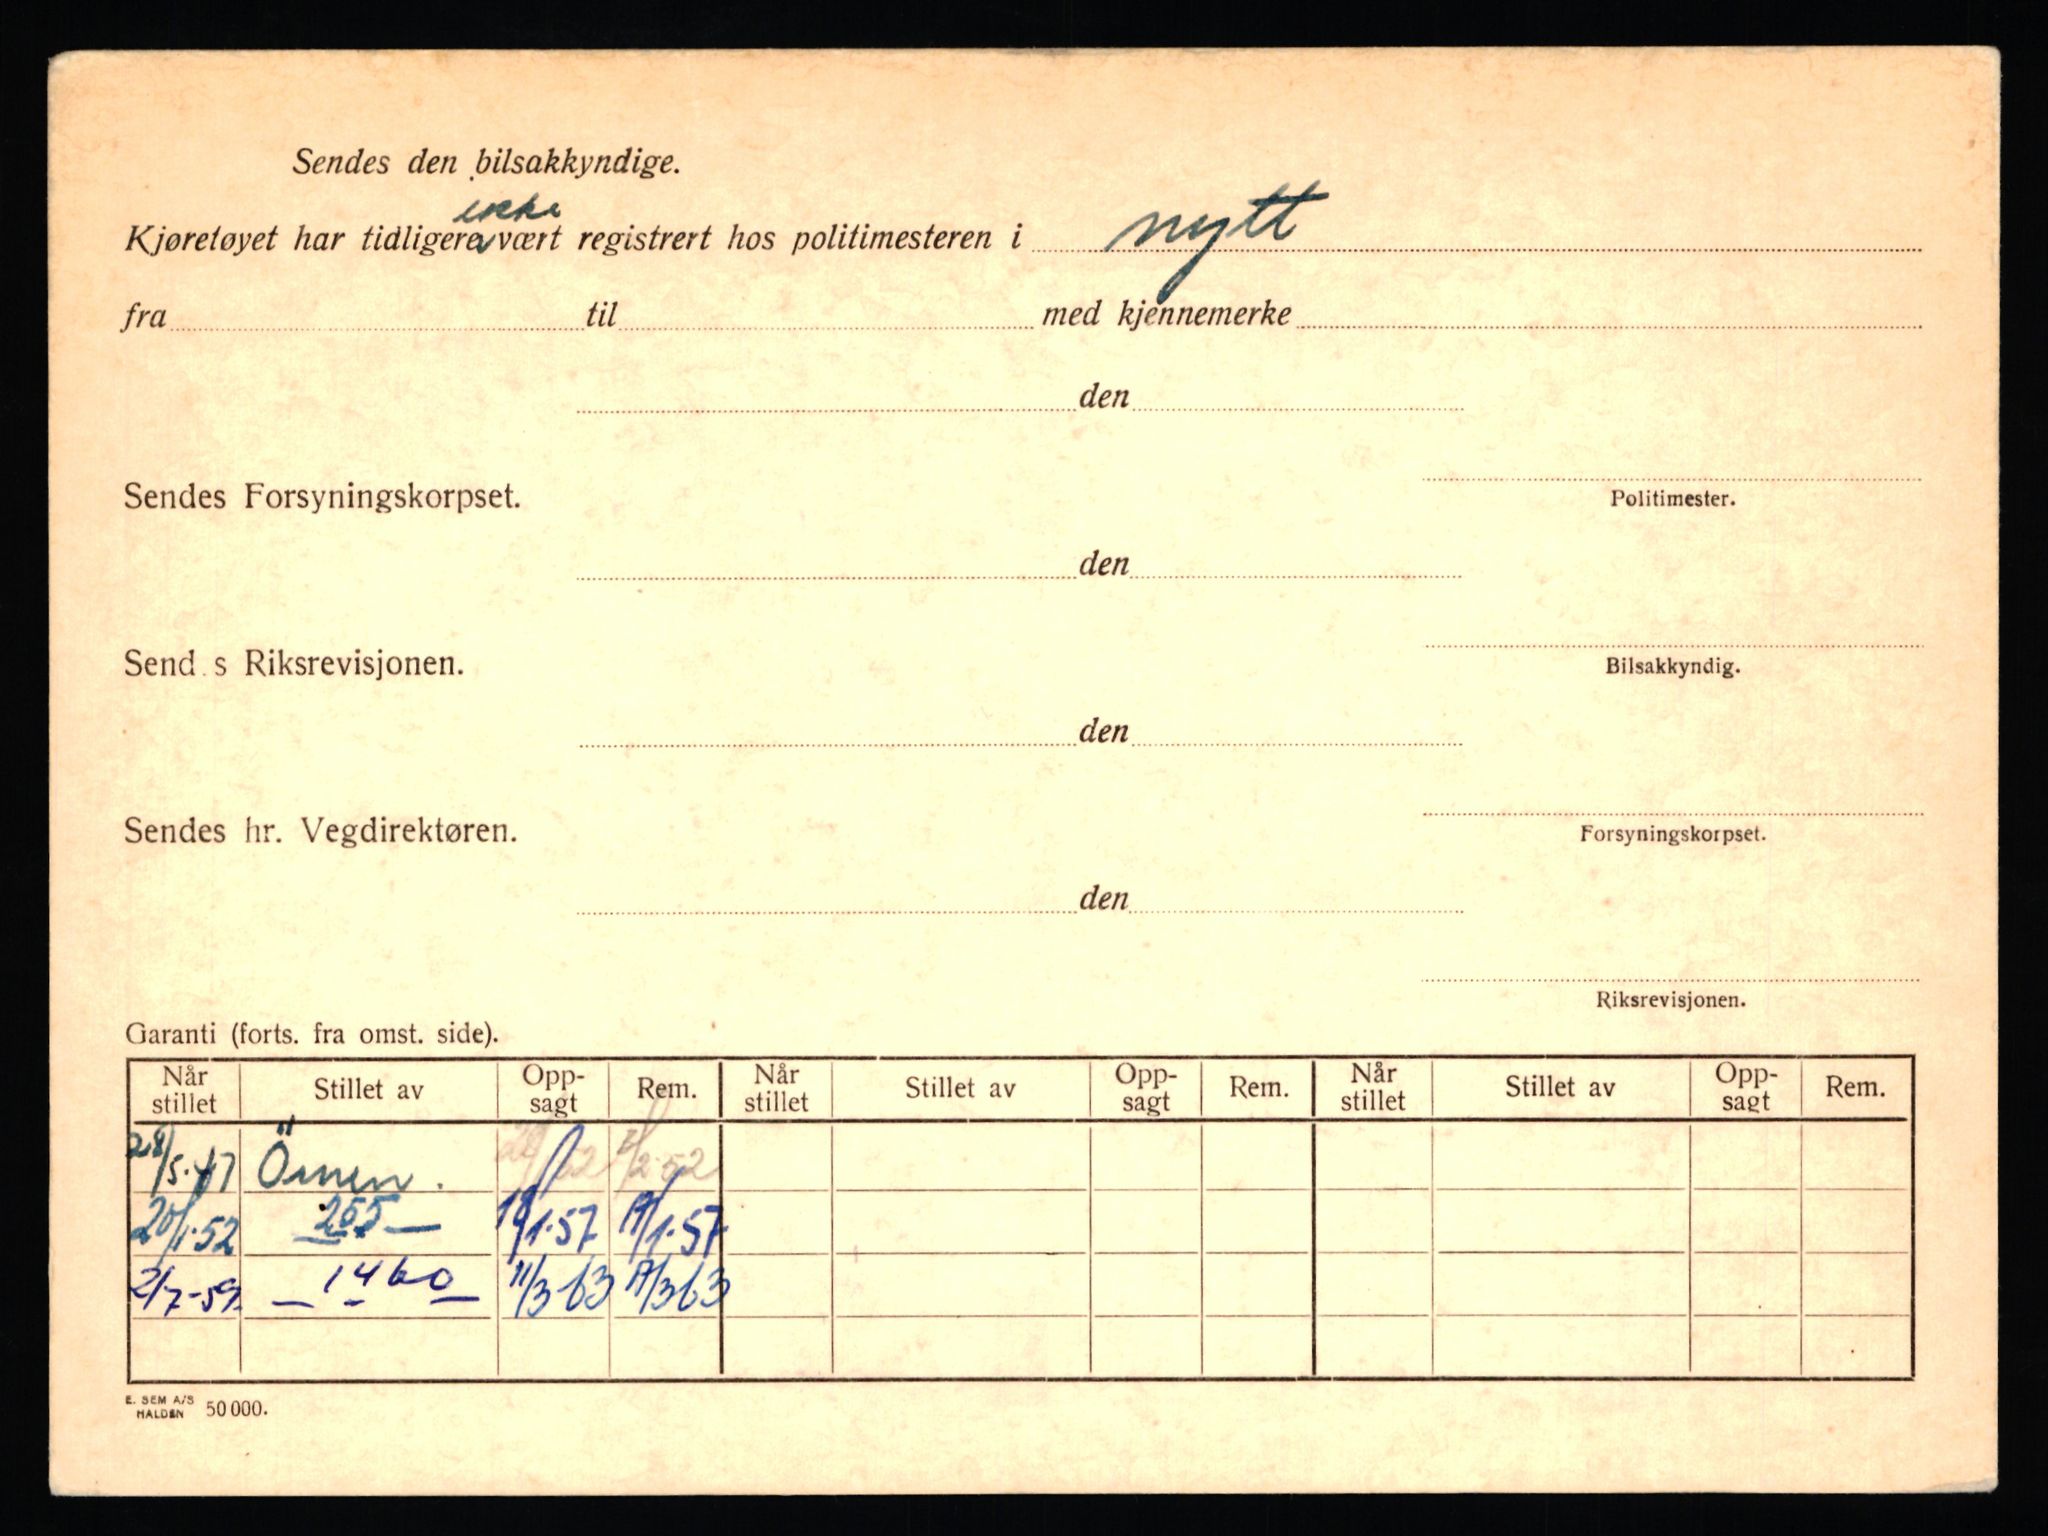 Sendes den bilsakkyndige.
ikke
Kjøretøyet har tidligere vært registrert hos politimesteren i nytt
fra til med kjennemerke
den
Sendes Forsyningskorpset. Politimester.
den
Send s Riksrevisjonen. Bilsakkyndig.
den
Sendes hr. Vegdirektøren. Forsyningskorpset.
den
Riksrevisjonen.
Garanti (forts. fra omst. side).
Når stillet Stillet av Opp-sagt Rem. Når stillet Stillet av Opp-sagt Rem. Når stillet Stillet av Opp-sagt Rem.
28/5.47 Örnen. 2/2-52
20/1.52 — 255 — 18/1.57 19/1.57
2/7-59 — 1460 — 11/3-63 19/3 63
E. SEM A/S
HALDEN 50 000.